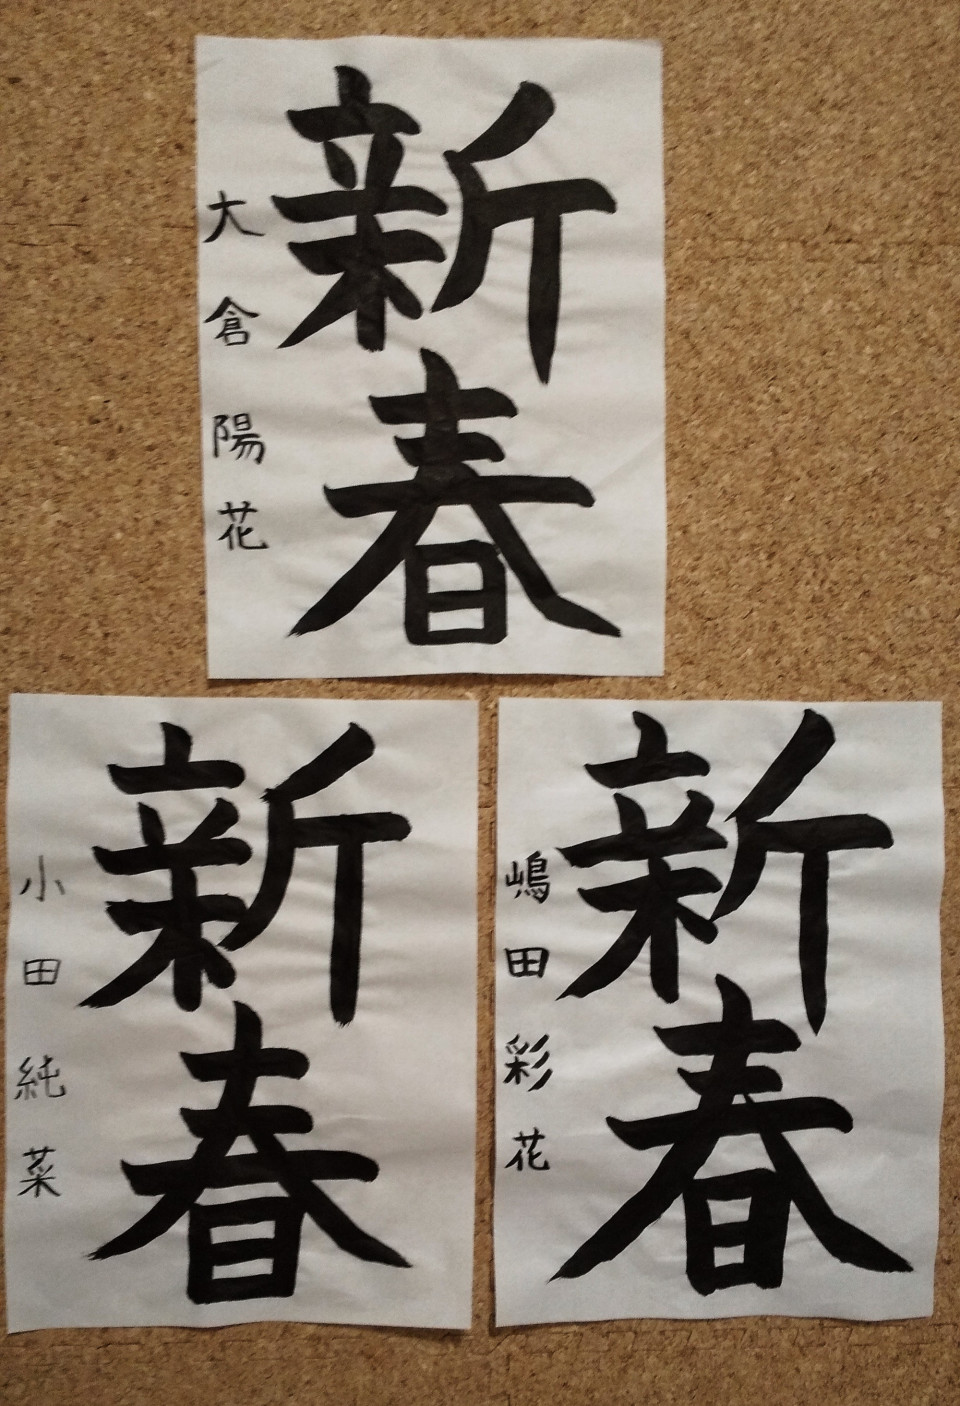 新春
大倉陽花
新春
小田純菜
新春
嶋田彩花